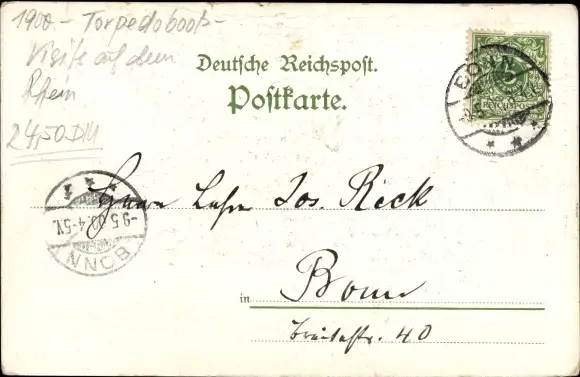 1900 - Torpedoboot-
Visite auf dem
Rhein
24,50 DM
Deutsche Reichspost.
Postkarte.
BONN
REICHSPOST
Herrn Lehrer Jos. Rick
-9.5.00.4-5N.
BONN
in Bonn
Breitestr. 40